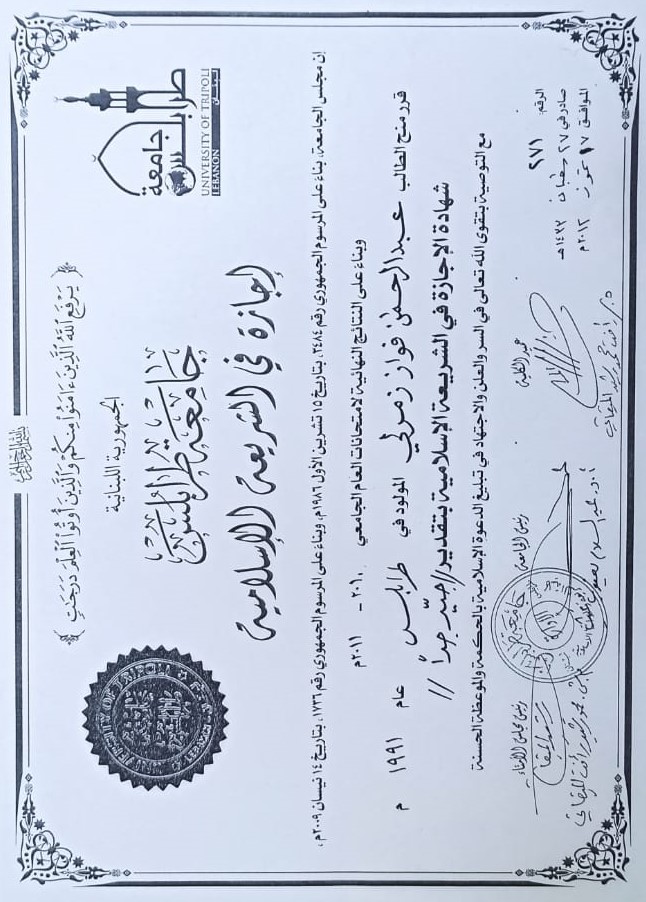 بسم الله الرحمن الرحيم
﴿ يَرْفَعِ اللَّهُ الَّذِينَ ءَامَنُوا مِنكُمْ وَالَّذِينَ أُوتُوا الْعِلْمَ دَرَجَاتٍ ﴾
جامعة طرابلس
لبنان
UNIVERSITY OF TRIPOLI
LEBANON
الجمهورية اللبنانية
جامعة طرابلس
إجازة في الشريعة الإسلامية
إن مجلس الجامعة، بناء على المرسوم الجمهوري رقم ٢٤٨٤، بتاريخ ١٥ تشرين الأول ١٩٨٦م، وبناء على المرسوم الجمهوري رقم ١٧٣٦، بتاريخ ١٤ نيسان ٢٠٠٩م،
وبناء على النتائج النهائية لامتحانات العام الجامعي ٢٠١٠ - ٢٠١١م
قرر منح الطالب عبد الرحمن فواز زمرلي المولود في طرابلس عام ١٩٩١ م
شهادة الإجازة في الشريعة الإسلامية بتقدير // جيّد جداً //
مع التوصية بتقوى الله تعالى في السر والعلن والاجتهاد في تبليغ الدعوة الإسلامية بالحكمة والموعظة الحسنة
الرقم: ٢٧١
صادر في ٢٧ شعبان ١٤٣٣ هـ
الموافق ١٧ تموز ٢٠١٢ م
عميد الكلية
رئيس الجامعة
رئيس مجلس الأمناء
UNIVERSITY OF TRIPOLI